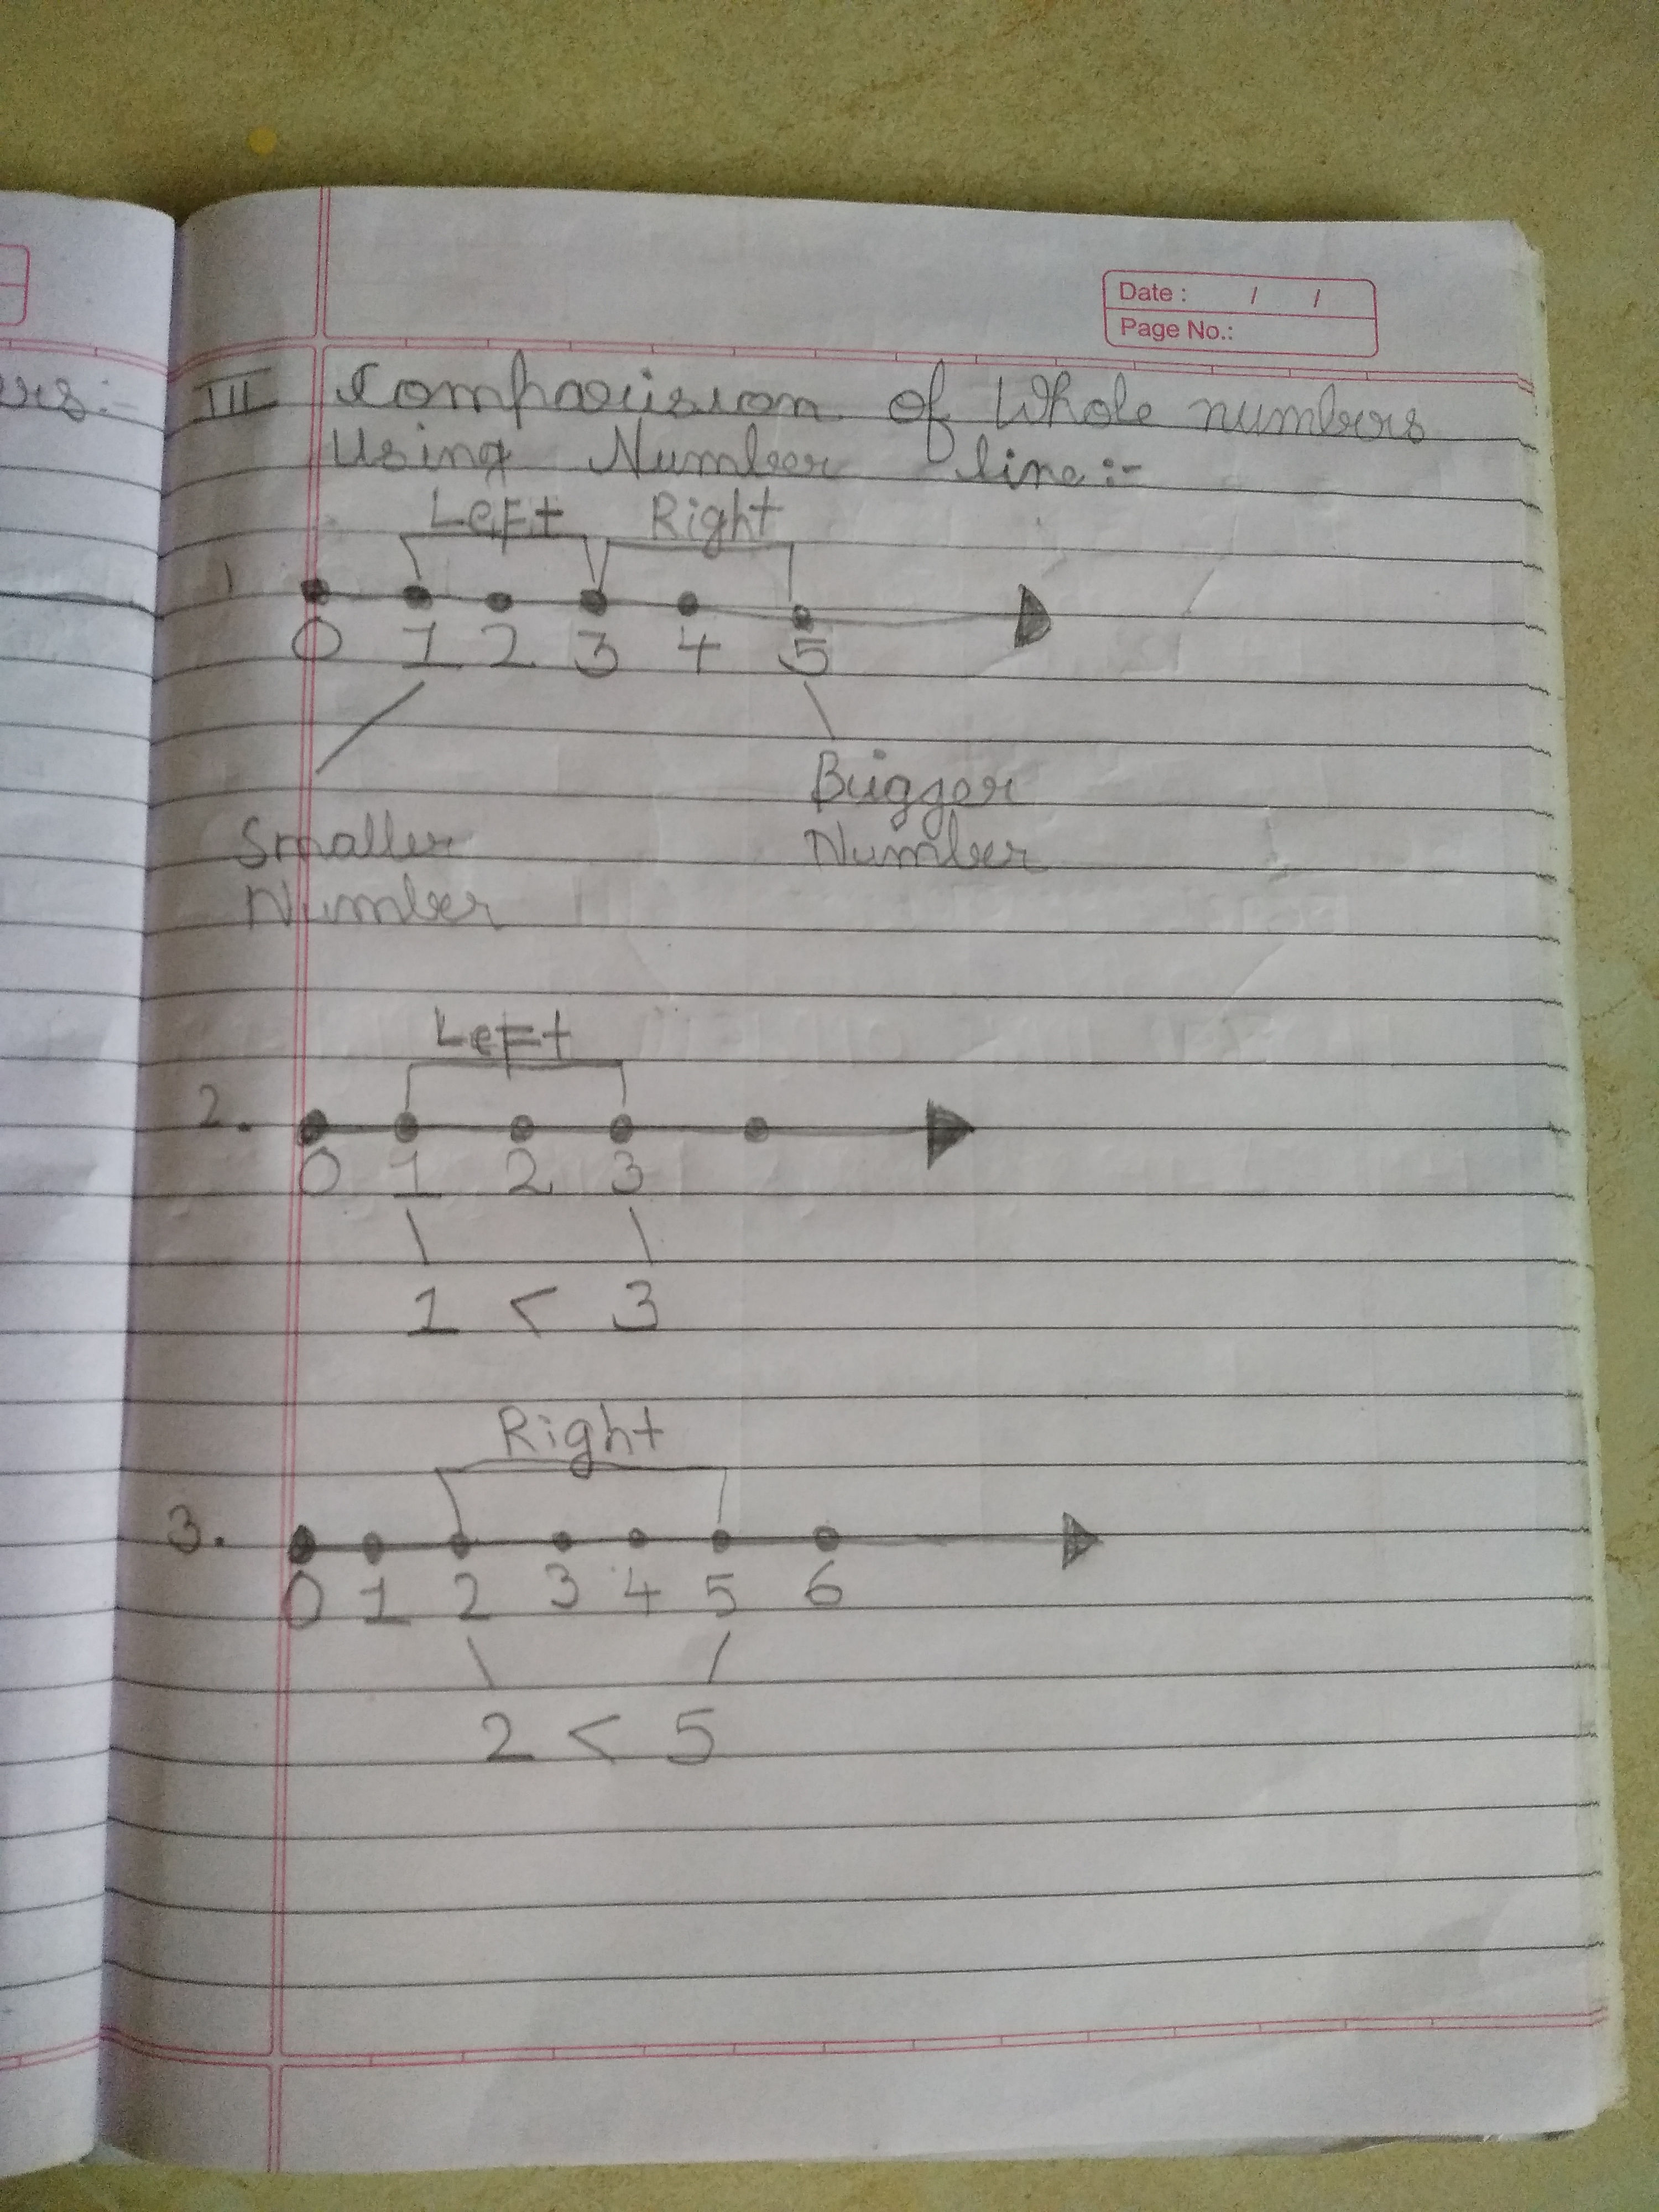 Date : / /
Page No.:
ers:-
III Comparision of Whole numbers
Using Number line:-
Left Right
1
0 1 2 3 4 5
Bigger
Number
Smaller
Number
Left
2.
0 1 2 3
1 < 3
Right
3.
0 1 2 3 4 5 6
2 < 5